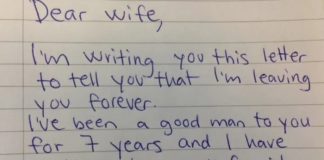 Dear wife,
I'm writing you this letter
to tell you that I'm leaving
you forever.
I've been a good man to you
for 7 years and I have